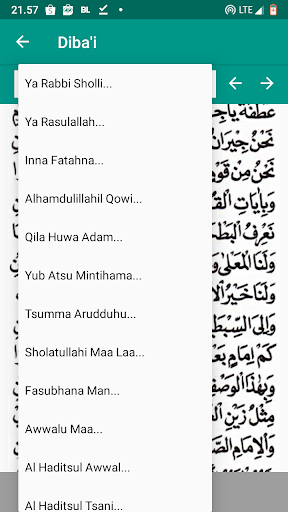 21.57
BL
LTE
Diba'i
Ya Rabbi Sholli...
Ya Rasulallah...
Inna Fatahna...
Alhamdulillahil Qowi...
Qila Huwa Adam...
Yub Atsu Mintihama...
Tsumma Arudduhu...
Sholatullahi Maa Laa...
Fasubhana Man...
Awwalu Maa...
Al Haditsul Awwal...
Al Haditsul Tsani...
نَحْنُ جِيرَانٌ
نَحْنُ مِنْ قَوْمٍ
وَلَنَا الْمَعْلَى
وَلَنَا خَيْرُ
وَإِلَى السِّبْطَ
كَمْ إِمَامٍ بَعْ
وَبِهٰذَا الْوَصْفِ
مِثْلُ زَيْنِ
وَالْإِمَامِ الصَّ